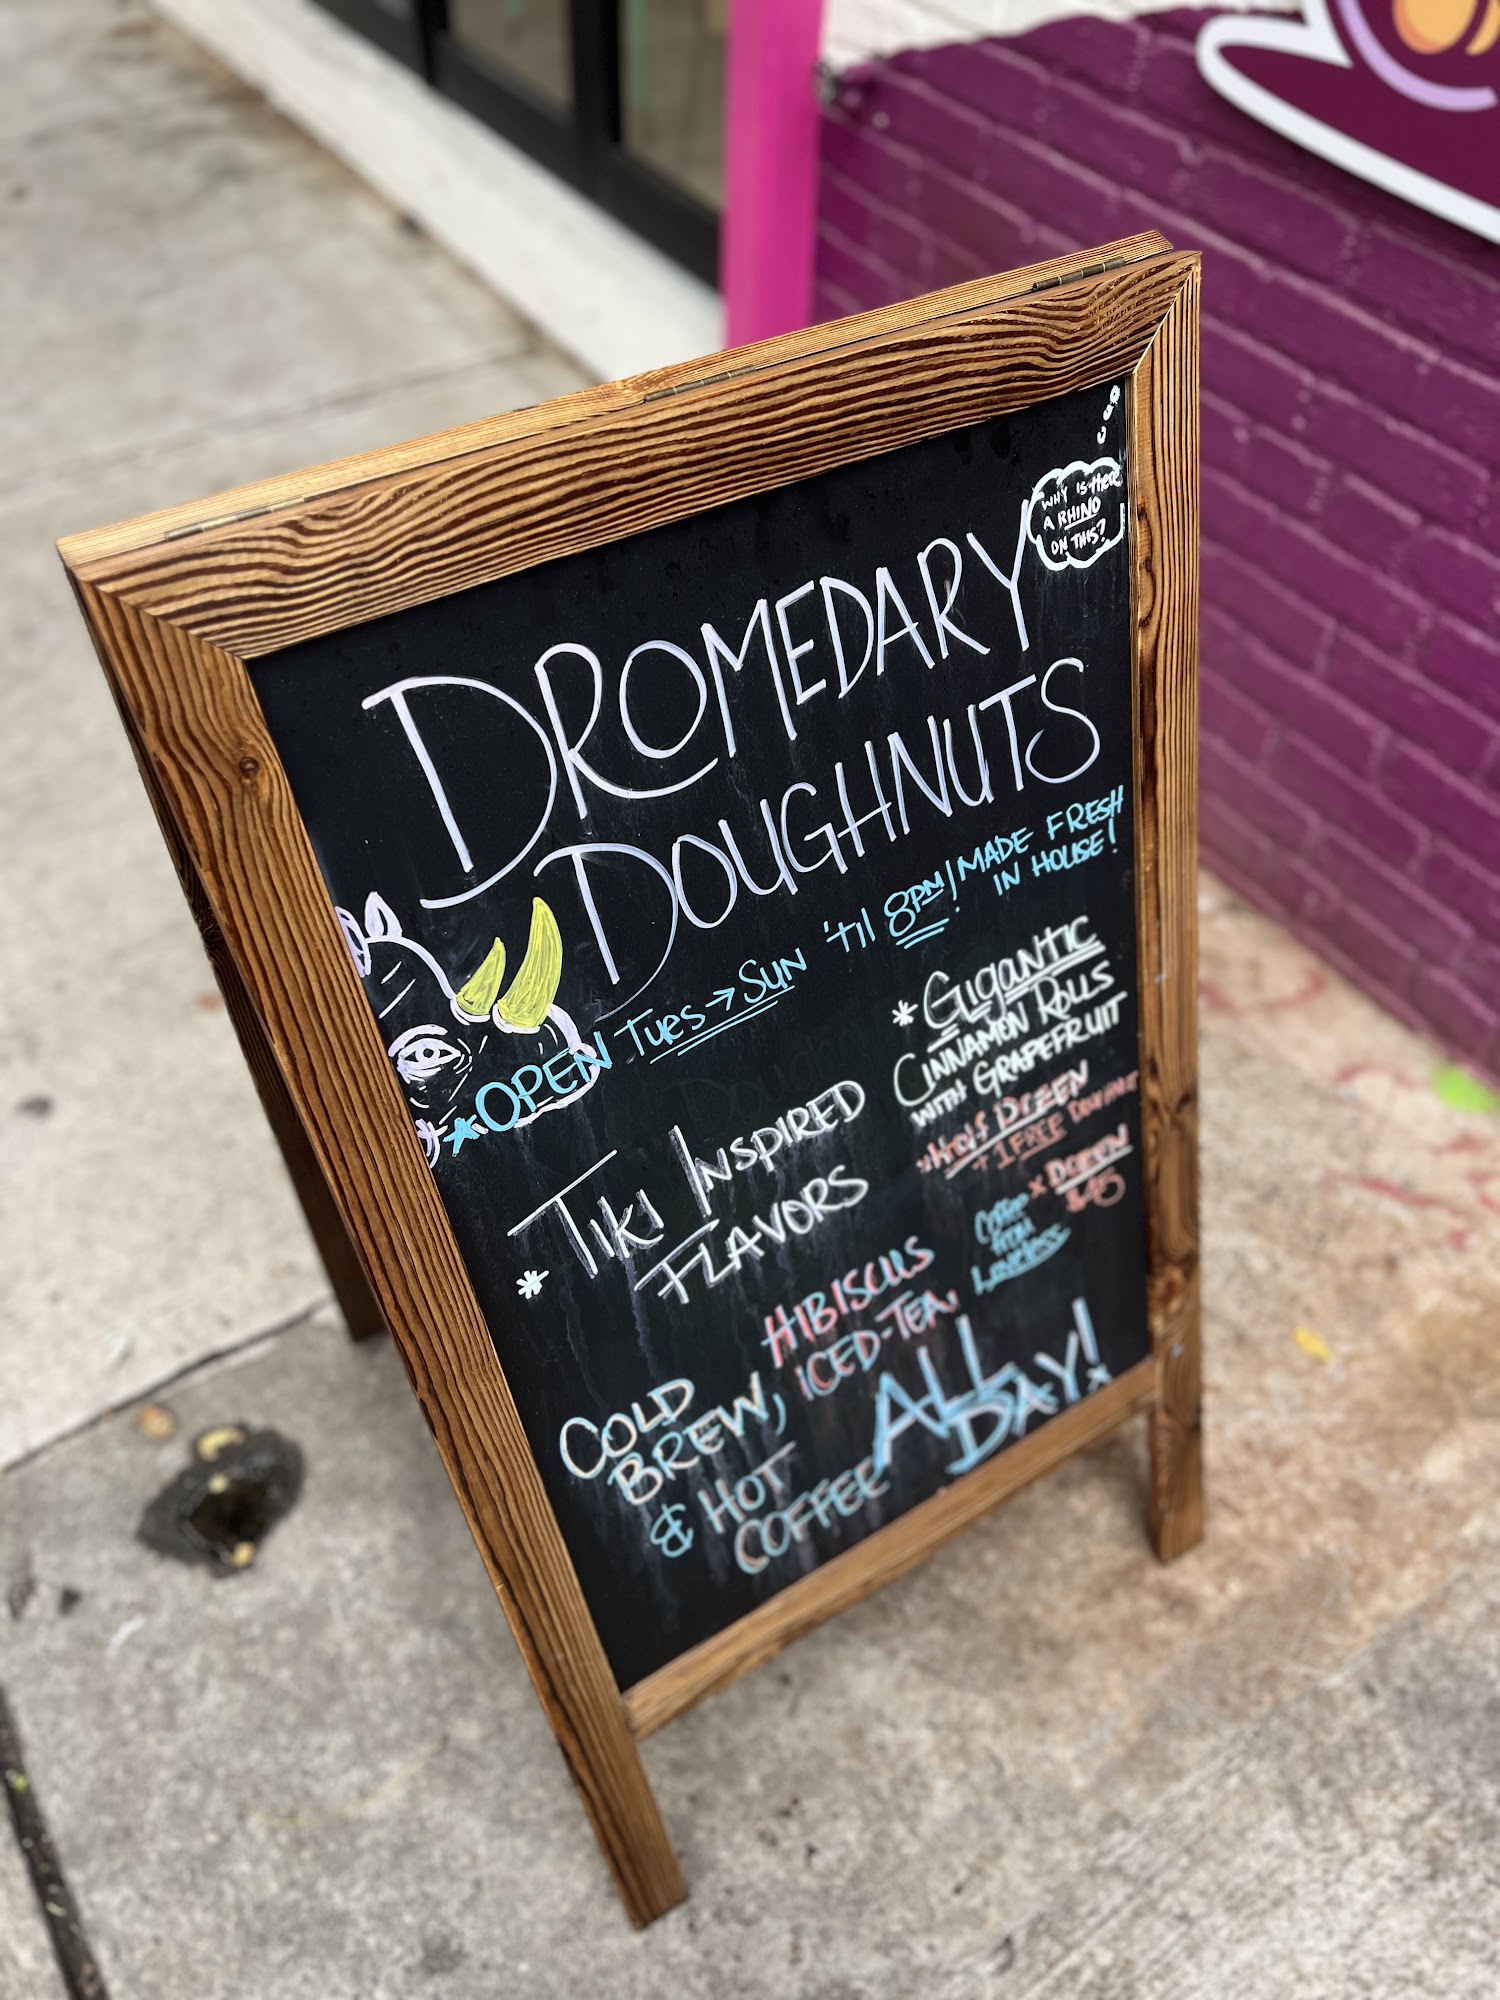 WHY IS there
A RHINO
ON THIS?
DROMEDARY
DOUGHNUTS
*OPEN TUES → SUN 'til 8PM! MADE FRESH
IN HOUSE!
* GIGANTIC
CINNAMON ROLLS
WITH GRAPEFRUIT
* TIKI INSPIRED
FLAVORS
*Half DOZEN
+ 1 FREE DOUGHNUT
* DOZEN
$45
Coffee
FROM
HIBISCUS
ICED-TEA,
COLD
BREW,
& HOT
COFFEE
ALL
DAY!